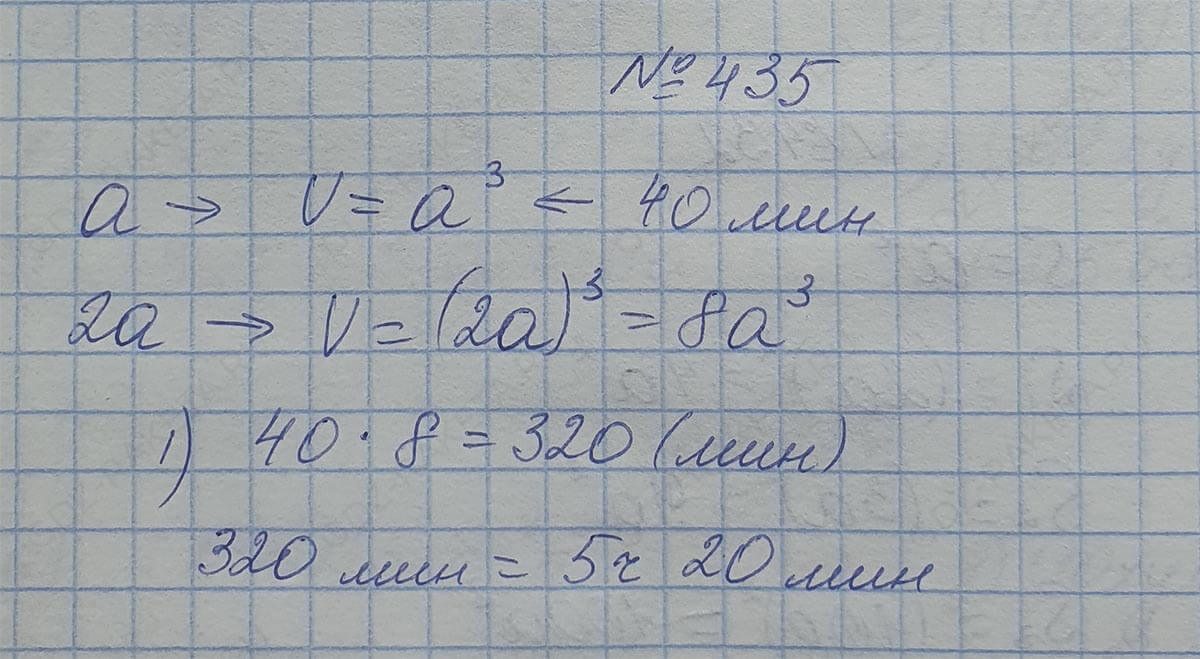 № 435
a → V = a³ ← 40 мин
2a → V = (2a)³ = 8a³
1) 40 · 8 = 320 (мин)
320 мин = 5ч 20 мин